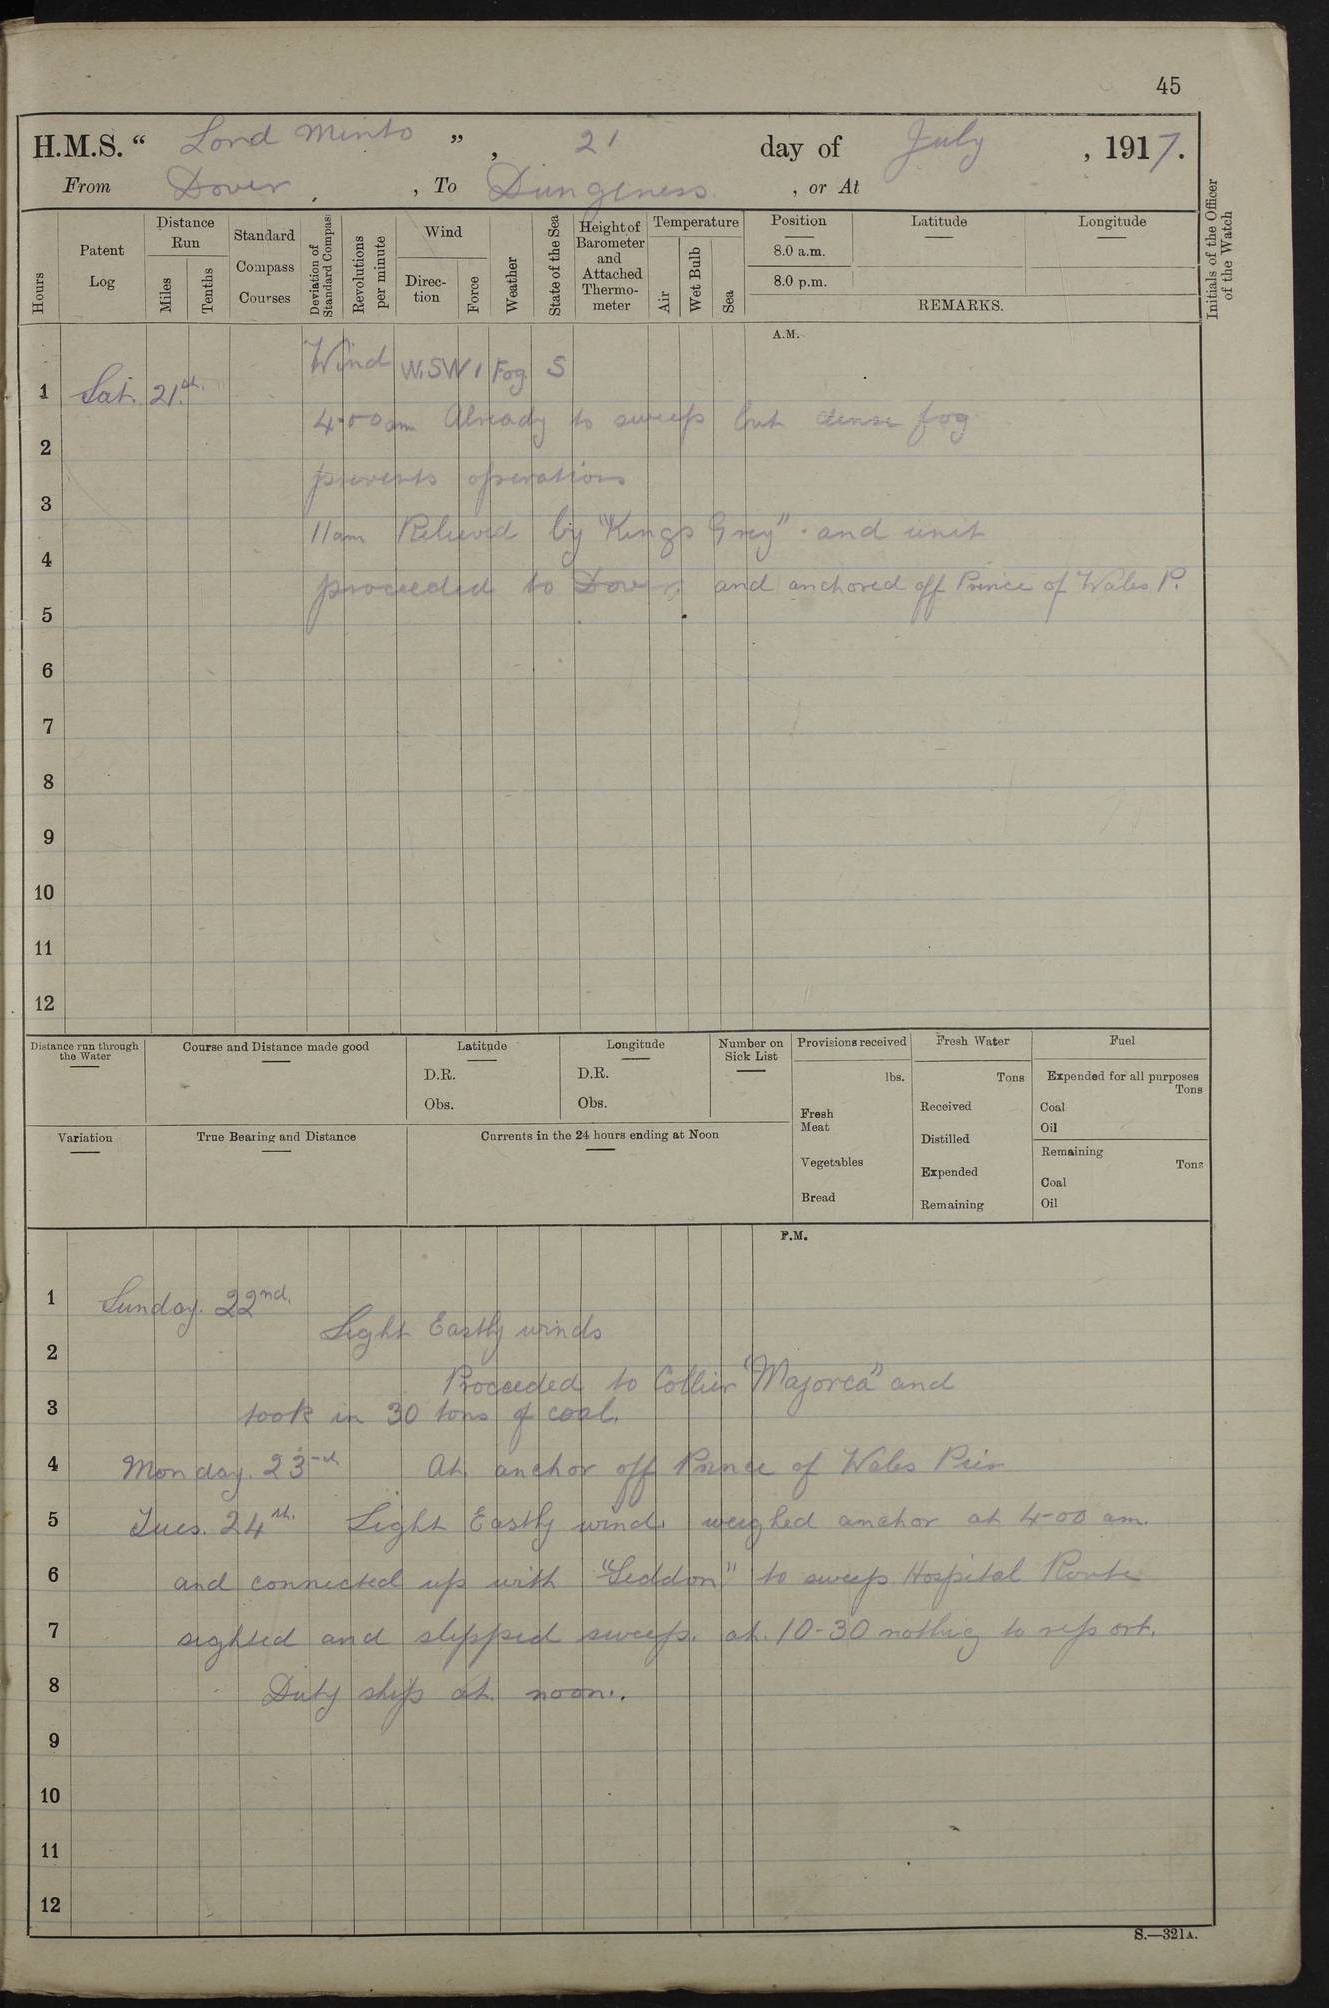 45
H.M.S. “ Lord Minto ” , 21 day of July , 1917.
From Dover , To Dungeness , or At
Hours
Patent Log
Distance Run
Miles
Tenths
Standard Compass Courses
Deviation of Standard Compass
Revolutions per minute
Wind
Direc-tion
Force
Weather
State of the Sea
Height of Barometer and Attached Thermo-meter
Temperature
Air
Wet Bulb
Sea
Position
8.0 a.m.
8.0 p.m.
Latitude
Longitude
REMARKS.
Initials of the Officer of the Watch
A.M.
Wind W.SW 1 Fog S
1 Sat. 21st.
4-00am Already to sweep but dense fog
2
prevents operations
3
11am Relieved by "Kings Grey" and unit
4
proceeded to Dover. and anchored off Prince of Wales P.
5
6
7
8
9
10
11
12
Distance run through the Water
Course and Distance made good
Latitude
D.R.
Obs.
Longitude
D.R.
Obs.
Number on Sick List
Provisions received
lbs.
Fresh Meat
Vegetables
Bread
Fresh Water
Tons
Received
Distilled
Expended
Remaining
Fuel
Expended for all purposes
Tons
Coal
Oil
Remaining
Tons
Coal
Oil
Variation
True Bearing and Distance
Currents in the 24 hours ending at Noon
P.M.
1 Sunday. 22nd.
Light Eastly winds
2
Proceeded to Collier "Majorca" and
3 took in 30 tons of coal.
4 Monday. 23rd At anchor off Prince of Wales Pier
5 Tues. 24th. Light Eastly wind. weighed anchor at 4-00 am.
6 and connected up with "Seddon" to sweep Hospital Route
7 sighted and slipped sweep. at. 10-30 nothig to report.
8 Duty ship at noon.
9
10
11
12
S.—321A.